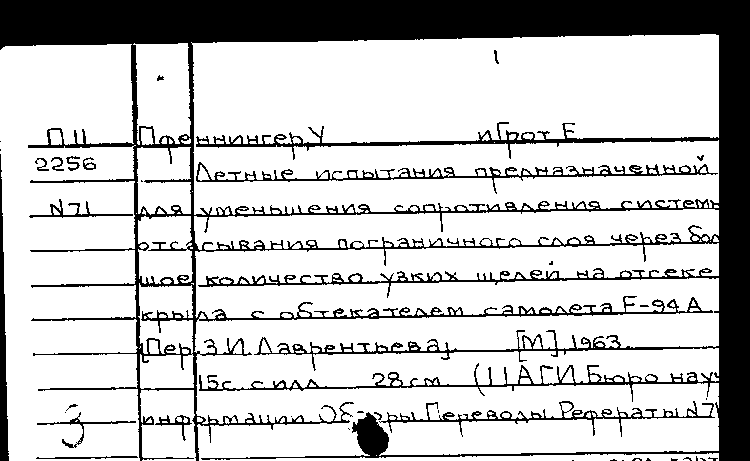 1
П II Пфеннингер, У и Грот, Е
2256 Летные испытания предназначенной
N 71 для уменьшения сопротивления системы
отсасывания пограничного слоя через бол
шое количество узких щелей на отсеке
крыла с обтекателем самолета F-94 A
[Пер. З.И. Лаврентьева]. [М], 1963.
15с. с илл. 28 см. (ЦАГИ. Бюро науч
3 информации. Обзоры. Переводы. Рефераты N 71